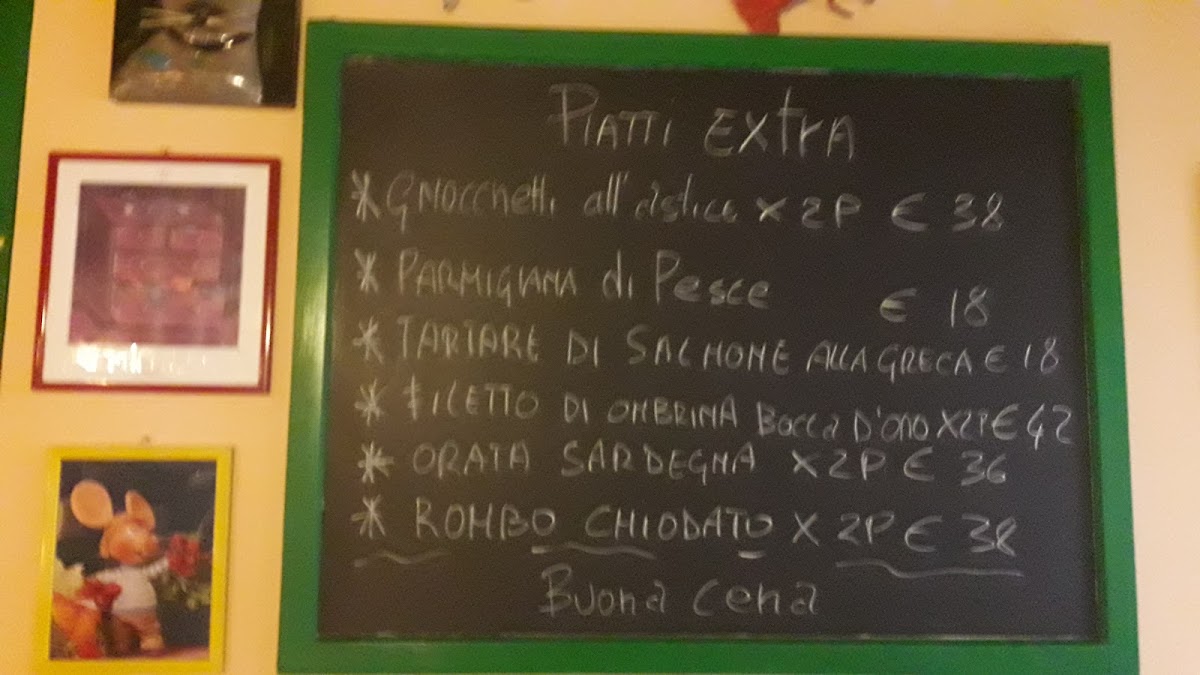 PIATTI EXTRA
* GNOCCHETTI all'astice x 2P € 38
* PARMIGIANA di Pesce € 18
* TARTARE DI SALMONE ALLA GRECA € 18
* FILETTO DI OMBRINA BOCCA D'ORO X2P € 42
* ORATA SARDEGNA X 2P € 36
* ROMBO CHIODATO X 2P € 38
Buona cena